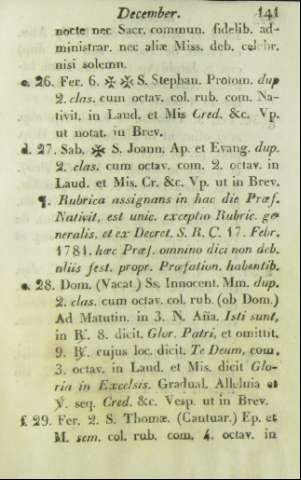 December. 141
nocte nec Sacr. commun. fidelib. ad-
ministrar. nec aliæ Miss. deb. celebr.
nisi solemn.
e. 26. Fer. 6. ✠ ✠ S. Stephan. Protom. dup
2. clas. cum octav. col. rub. com. Na-
tivit. in Laud. et Mis Cred. &c. Vp.
ut notat. in Brev.
d. 27. Sab. ✠ S. Joann. Ap. et Evang. dup.
2. clas. cum octav. com. 2. octav. in
Laud. et Mis. Cr. &c. Vp. ut in Brev.
¶. Rubrica assignans in hac die Præf.
Nativit, est unic. exceptio Rubric. ge
neralis, et ex Decret. S. R. C. 17. Febr.
1781. hæc Præf. omnino dici non deb.
aliis fest. propr. Præfation. habentib.
e. 28. Dom. (Vacat.) Ss. Innocent. Mm. dup.
2. clas. cum octav. col. rub. (ob Dom.)
Ad Matutin. in 3. N. Aña. Isti sunt,
in R⁄. 8. dicit. Glor. Patri, et omittit.
9. R⁄. cujus loc. dicit. Te Deum, com.
3. octav. in Laud. et Mis. dicit Glo-
ria in Excelsis. Gradual. Alleluia et
V⁄. seq. Cred. &c. Vesp. ut in Brev.
f. 29. Fer. 2. S. Thomæ. (Cantuar.) Ep. et
M. sem. col. rub. com. 4. octav. in